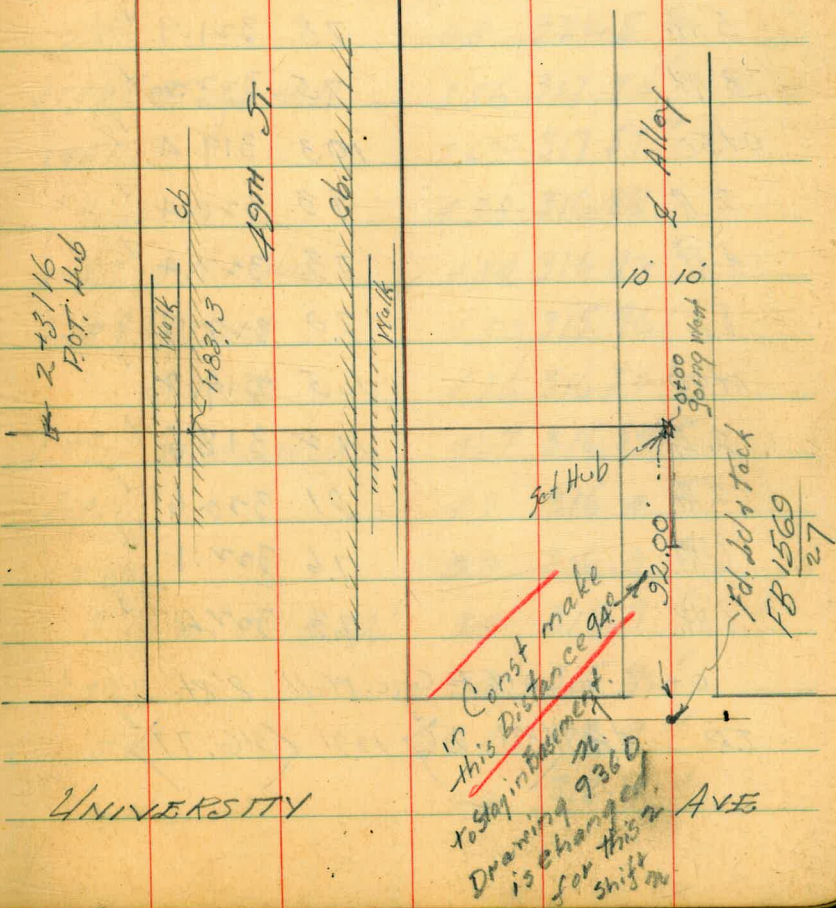 2+31.16
P.O.T. Hub
Walk
cb
1+83.13
49TH ST.
Cb.
Walk
10. 10.
℄ Alley
0+00
going West
Set Hub
92.00
Fd. Ld & Tack
FB 1569
27
in Const make
this Distance 94.0
to Stay in Easement.
Drawing 936 D
is changed
for this
shift
UNIVERSITY AVE